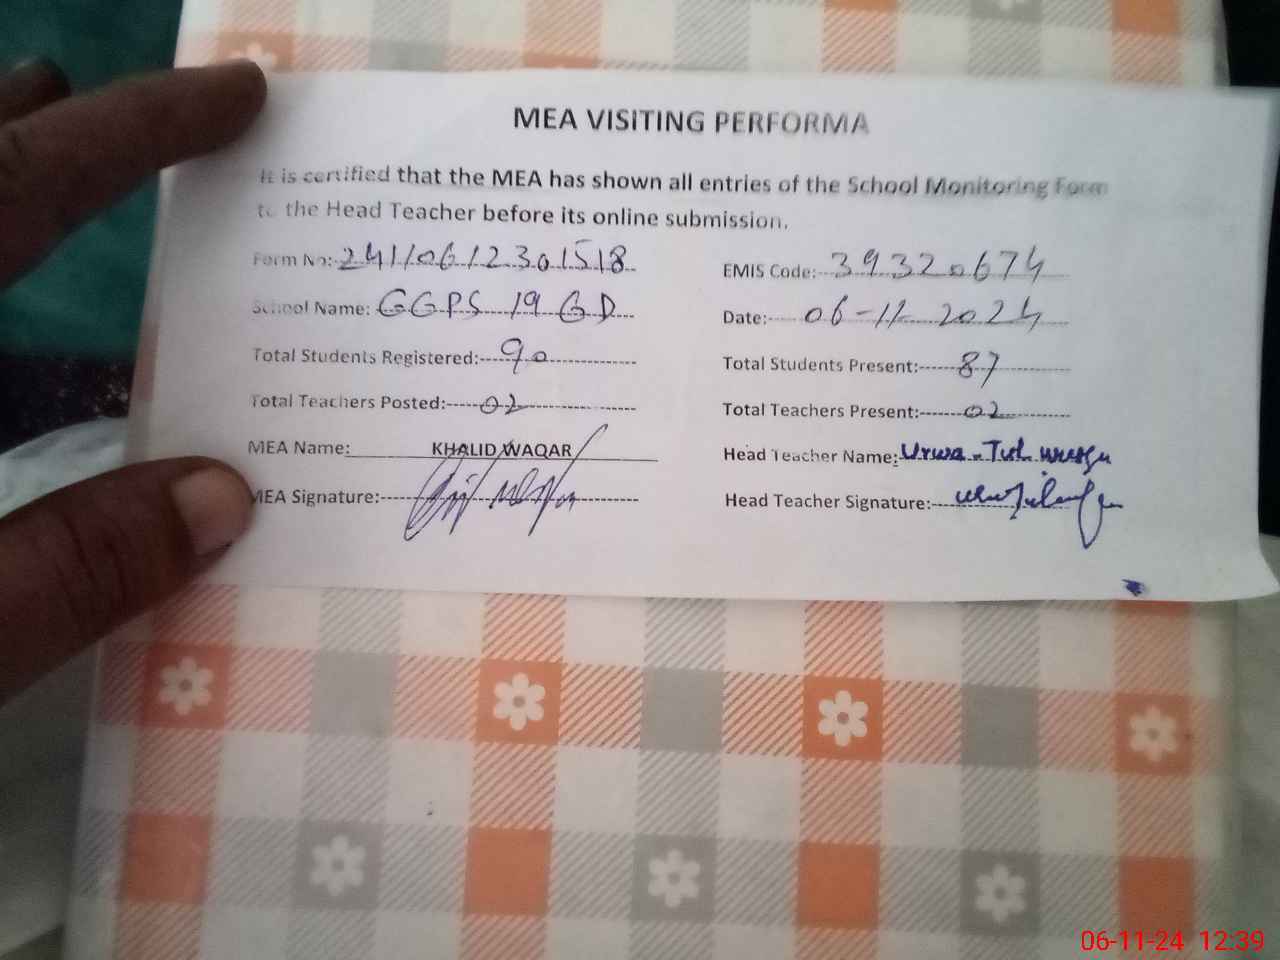 MEA VISITING PERFORMA
It is certified that the MEA has shown all entries of the School Monitoring Form
to the Head Teacher before its online submission.
Form No: 24110612301518 EMIS Code: 39320674
School Name: GGPS 19 GD Date: 06-11-2024
Total Students Registered: 90 Total Students Present: 87
Total Teachers Posted: 02 Total Teachers Present: 02
MEA Name: KHALID WAQAR Head Teacher Name: Urwa-Tul
MEA Signature: Head Teacher Signature:
06-11-24 12:39